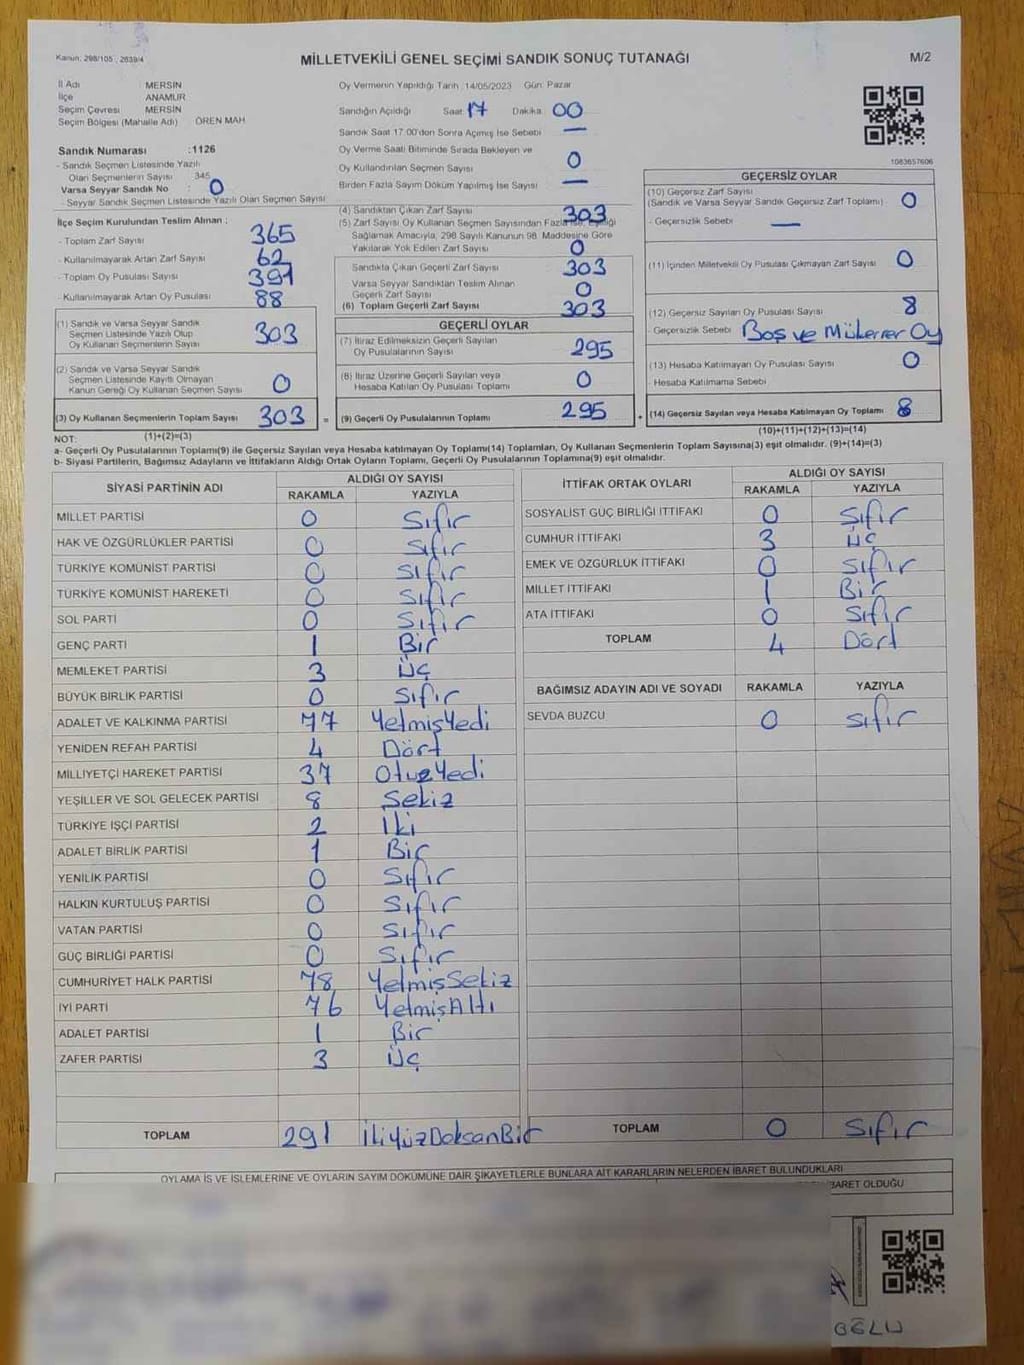 Kanun: 298/105 , 2839/4
MİLLETVEKİLİ GENEL SEÇİMİ SANDIK SONUÇ TUTANAĞI
M/2
İl Adı : MERSİN
İlçe ANAMUR
Seçim Çevresi : MERSİN
Seçim Bölgesi (Mahalle Adı) : ÖREN MAH
Sandık Numarası :1126
- Sandık Seçmen Listesinde Yazılı
Olan Seçmenlerin Sayısı 345
Varsa Seyyar Sandık No : 0
- Seyyar Sandık Seçmen Listesinde Yazılı Olan Seçmen Sayısı
İlçe Seçim Kurulundan Teslim Alınan :
- Toplam Zarf Sayısı 365
- Kullanılmayarak Artan Zarf Sayısı 62
- Toplam Oy Pusulası Sayısı 391
- Kullanılmayarak Artan Oy Pusulası 88
(1) Sandık ve Varsa Seyyar Sandık
Seçmen Listesinde Yazılı Olup
Oy Kullanan Seçmenlerin Sayısı 303
(2) Sandık ve Varsa Seyyar Sandık
Seçmen Listesinde Kayıtlı Olmayan
Kanun Gereği Oy Kullanan Seçmen Sayısı 0
(3) Oy Kullanan Seçmenlerin Toplam Sayısı 303 =
(1)+(2)=(3)
Oy Vermenin Yapıldığı Tarih :14/05/2023 Gün: Pazar
Sandığın Açıldığı Saat 17 Dakika 00
Sandık Saat 17:00'den Sonra Açımış İse Sebebi —
Oy Verme Saati Bitiminde Sırada Bekleyen ve
Oy Kullandırılan Seçmen Sayısı 0
Birden Fazla Sayım Döküm Yapılmış İse Sayısı —
(4) Sandıktan Çıkan Zarf Sayısı 303
(5) Zarf Sayısı Oy Kullanan Seçmen Sayısından Fazla İse, Eşitliği
Sağlamak Amacıyla, 298 Sayılı Kanunun 98. Maddesine Göre
Yakılarak Yok Edilen Zarf Sayısı 0
Sandıkta Çıkan Geçerli Zarf Sayısı 303
Varsa Seyyar Sandıktan Teslim Alınan
Geçerli Zarf Sayısı 0
(6) Toplam Geçerli Zarf Sayısı 303
GEÇERLİ OYLAR
(7) İtiraz Edilmeksizin Geçerli Sayılan
Oy Pusulalarının Sayısı 295
(8) İtiraz Üzerine Geçerli Sayılan veya
Hesaba Katılan Oy Pusulası Toplamı 0
(9) Geçerli Oy Pusulalarının Toplamı 295 +
1083657606
GEÇERSİZ OYLAR
(10) Geçersiz Zarf Sayısı
(Sandık ve Varsa Seyyar Sandık Geçersiz Zarf Toplamı) 0
- Geçersizlik Sebebi : —
(11) İçinden Milletvekili Oy Pusulası Çıkmayan Zarf Sayısı 0
(12) Geçersiz Sayılan Oy Pusulası Sayısı 8
- Geçersizlik Sebebi : Boş ve Mükerer Oy
(13) Hesaba Katılmayan Oy Pusulası Sayısı 0
- Hesaba Katılmama Sebebi
(14) Geçersiz Sayılan veya Hesaba Katılmayan Oy Toplamı 8
(10)+(11)+(12)+(13)=(14)
NOT:
a- Geçerli Oy Pusulalarının Toplamı(9) ile Geçersiz Sayılan veya Hesaba katılmayan Oy Toplamı(14) Toplamları, Oy Kullanan Seçmenlerin Toplam Sayısına(3) eşit olmalıdır. (9)+(14)=(3)
b- Siyasi Partilerin, Bağımsız Adayların ve İttifakların Aldığı Ortak Oyların Toplamı, Geçerli Oy Pusulalarının Toplamına(9) eşit olmalıdır.
SİYASİ PARTİNİN ADI ALDIĞI OY SAYISI
RAKAMLA YAZIYLA
MİLLET PARTİSİ 0 Sıfır
HAK VE ÖZGÜRLÜKLER PARTİSİ 0 Sıfır
TÜRKİYE KOMÜNİST PARTİSİ 0 Sıfır
TÜRKİYE KOMÜNİST HAREKETİ 0 Sıfır
SOL PARTİ 0 Sıfır
GENÇ PARTİ 1 Bir
MEMLEKET PARTİSİ 3 Üç
BÜYÜK BİRLİK PARTİSİ 0 Sıfır
ADALET VE KALKINMA PARTİSİ 77 YetmişYedi
YENİDEN REFAH PARTİSİ 4 Dört
MİLLİYETÇİ HAREKET PARTİSİ 37 OtuzYedi
YEŞİLLER VE SOL GELECEK PARTİSİ 8 Sekiz
TÜRKİYE İŞÇİ PARTİSİ 2 İki
ADALET BİRLİK PARTİSİ 1 Bir
YENİLİK PARTİSİ 0 Sıfır
HALKIN KURTULUŞ PARTİSİ 0 Sıfır
VATAN PARTİSİ 0 Sıfır
GÜÇ BİRLİĞİ PARTİSİ 0 Sıfır
CUMHURİYET HALK PARTİSİ 78 YetmişSekiz
İYİ PARTİ 76 YetmişAltı
ADALET PARTİSİ 1 Bir
ZAFER PARTİSİ 3 Üç
TOPLAM 291 İkiyüzDoksanBir
İTTİFAK ORTAK OYLARI ALDIĞI OY SAYISI
RAKAMLA YAZIYLA
SOSYALİST GÜÇ BİRLİĞİ İTTİFAKI 0 Sıfır
CUMHUR İTTİFAKI 3 Üç
EMEK VE ÖZGÜRLÜK İTTİFAKI 0 Sıfır
MİLLET İTTİFAKI 1 Bir
ATA İTTİFAKI 0 Sıfır
TOPLAM 4 Dört
BAĞIMSIZ ADAYIN ADI VE SOYADI RAKAMLA YAZIYLA
SEVDA BUZCU 0 sıfır
TOPLAM 0 Sıfır
OYLAMA İŞ VE İŞLEMLERİNE VE OYLARIN SAYIM DÖKÜMÜNE DAİR ŞİKAYETLERLE BUNLARA AİT KARARLARIN NELERDEN İBARET BULUNDUKLARI
İBARET OLDUĞU